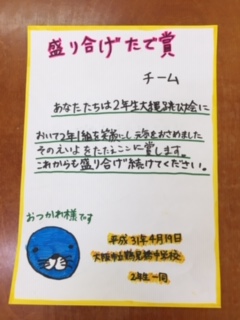 盛り合げたで賞
チーム
あなたたちは2年生大縄跳び大会に
おいて2年1組を笑顔にし元気をおさめました
そのえいよをたたえここに賞します。
これからも盛り合げ続けてください。
おつかれ様です
平成31年4月19日
大阪市立鶴見橋中学校
2年生一同